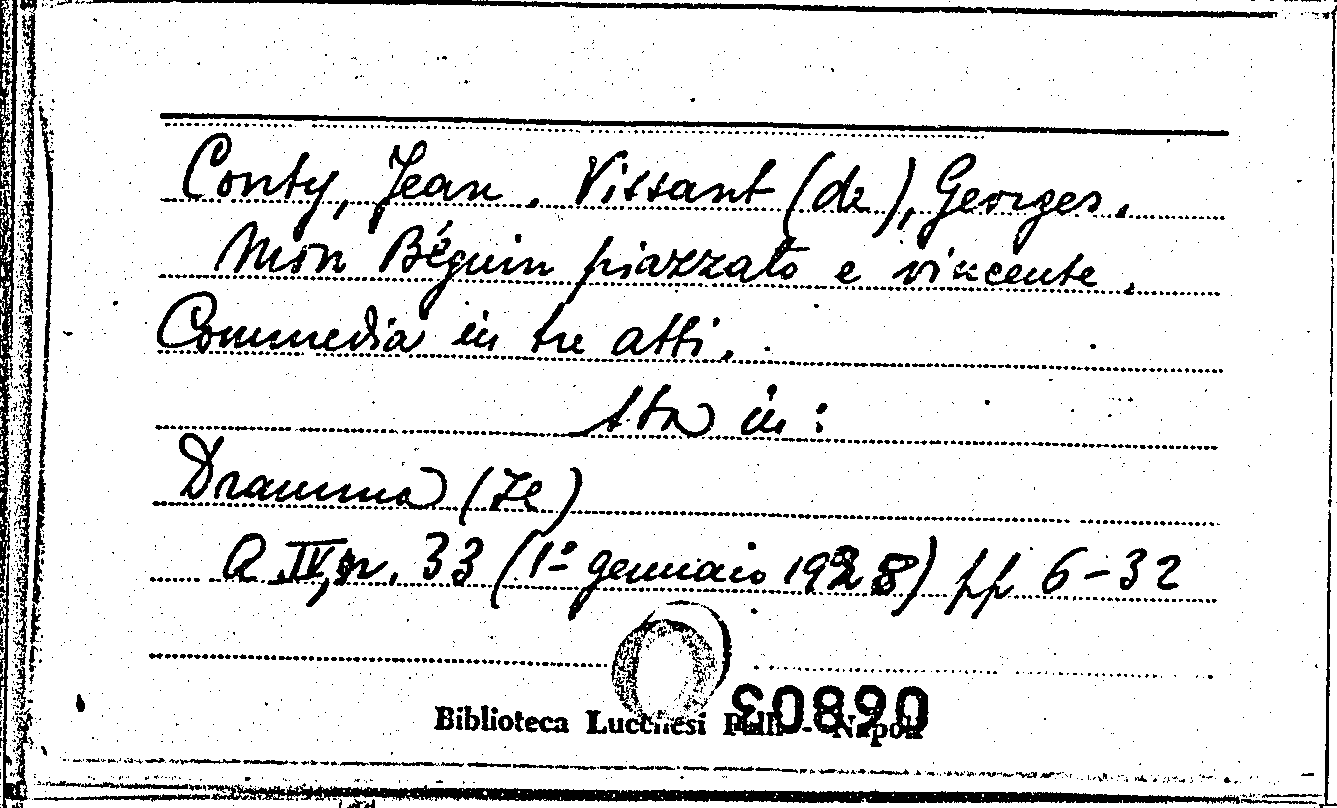 Conty, Jean. Vissant (de), Georges.
Mon Béguin piazzato e vincente.
Commedia in tre atti.
Sta in:
Dramma (Il)
A. IV, n. 33 (1º gennaio 1928) pp 6-32
Biblioteca Lucchesi Palli - Napoli